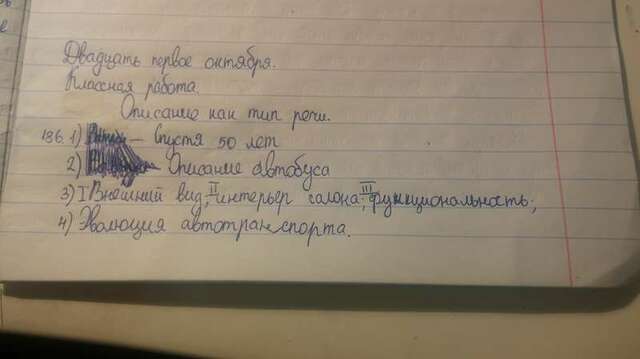 Двадцать первое октября.
Классная работа.
Описание как тип речи.
136. 1) — Спустя 50 лет
2) Описание автобуса
3) I Внешний вид, II интерьер салона, III функциональность;
4) Эволюция автотранспорта.